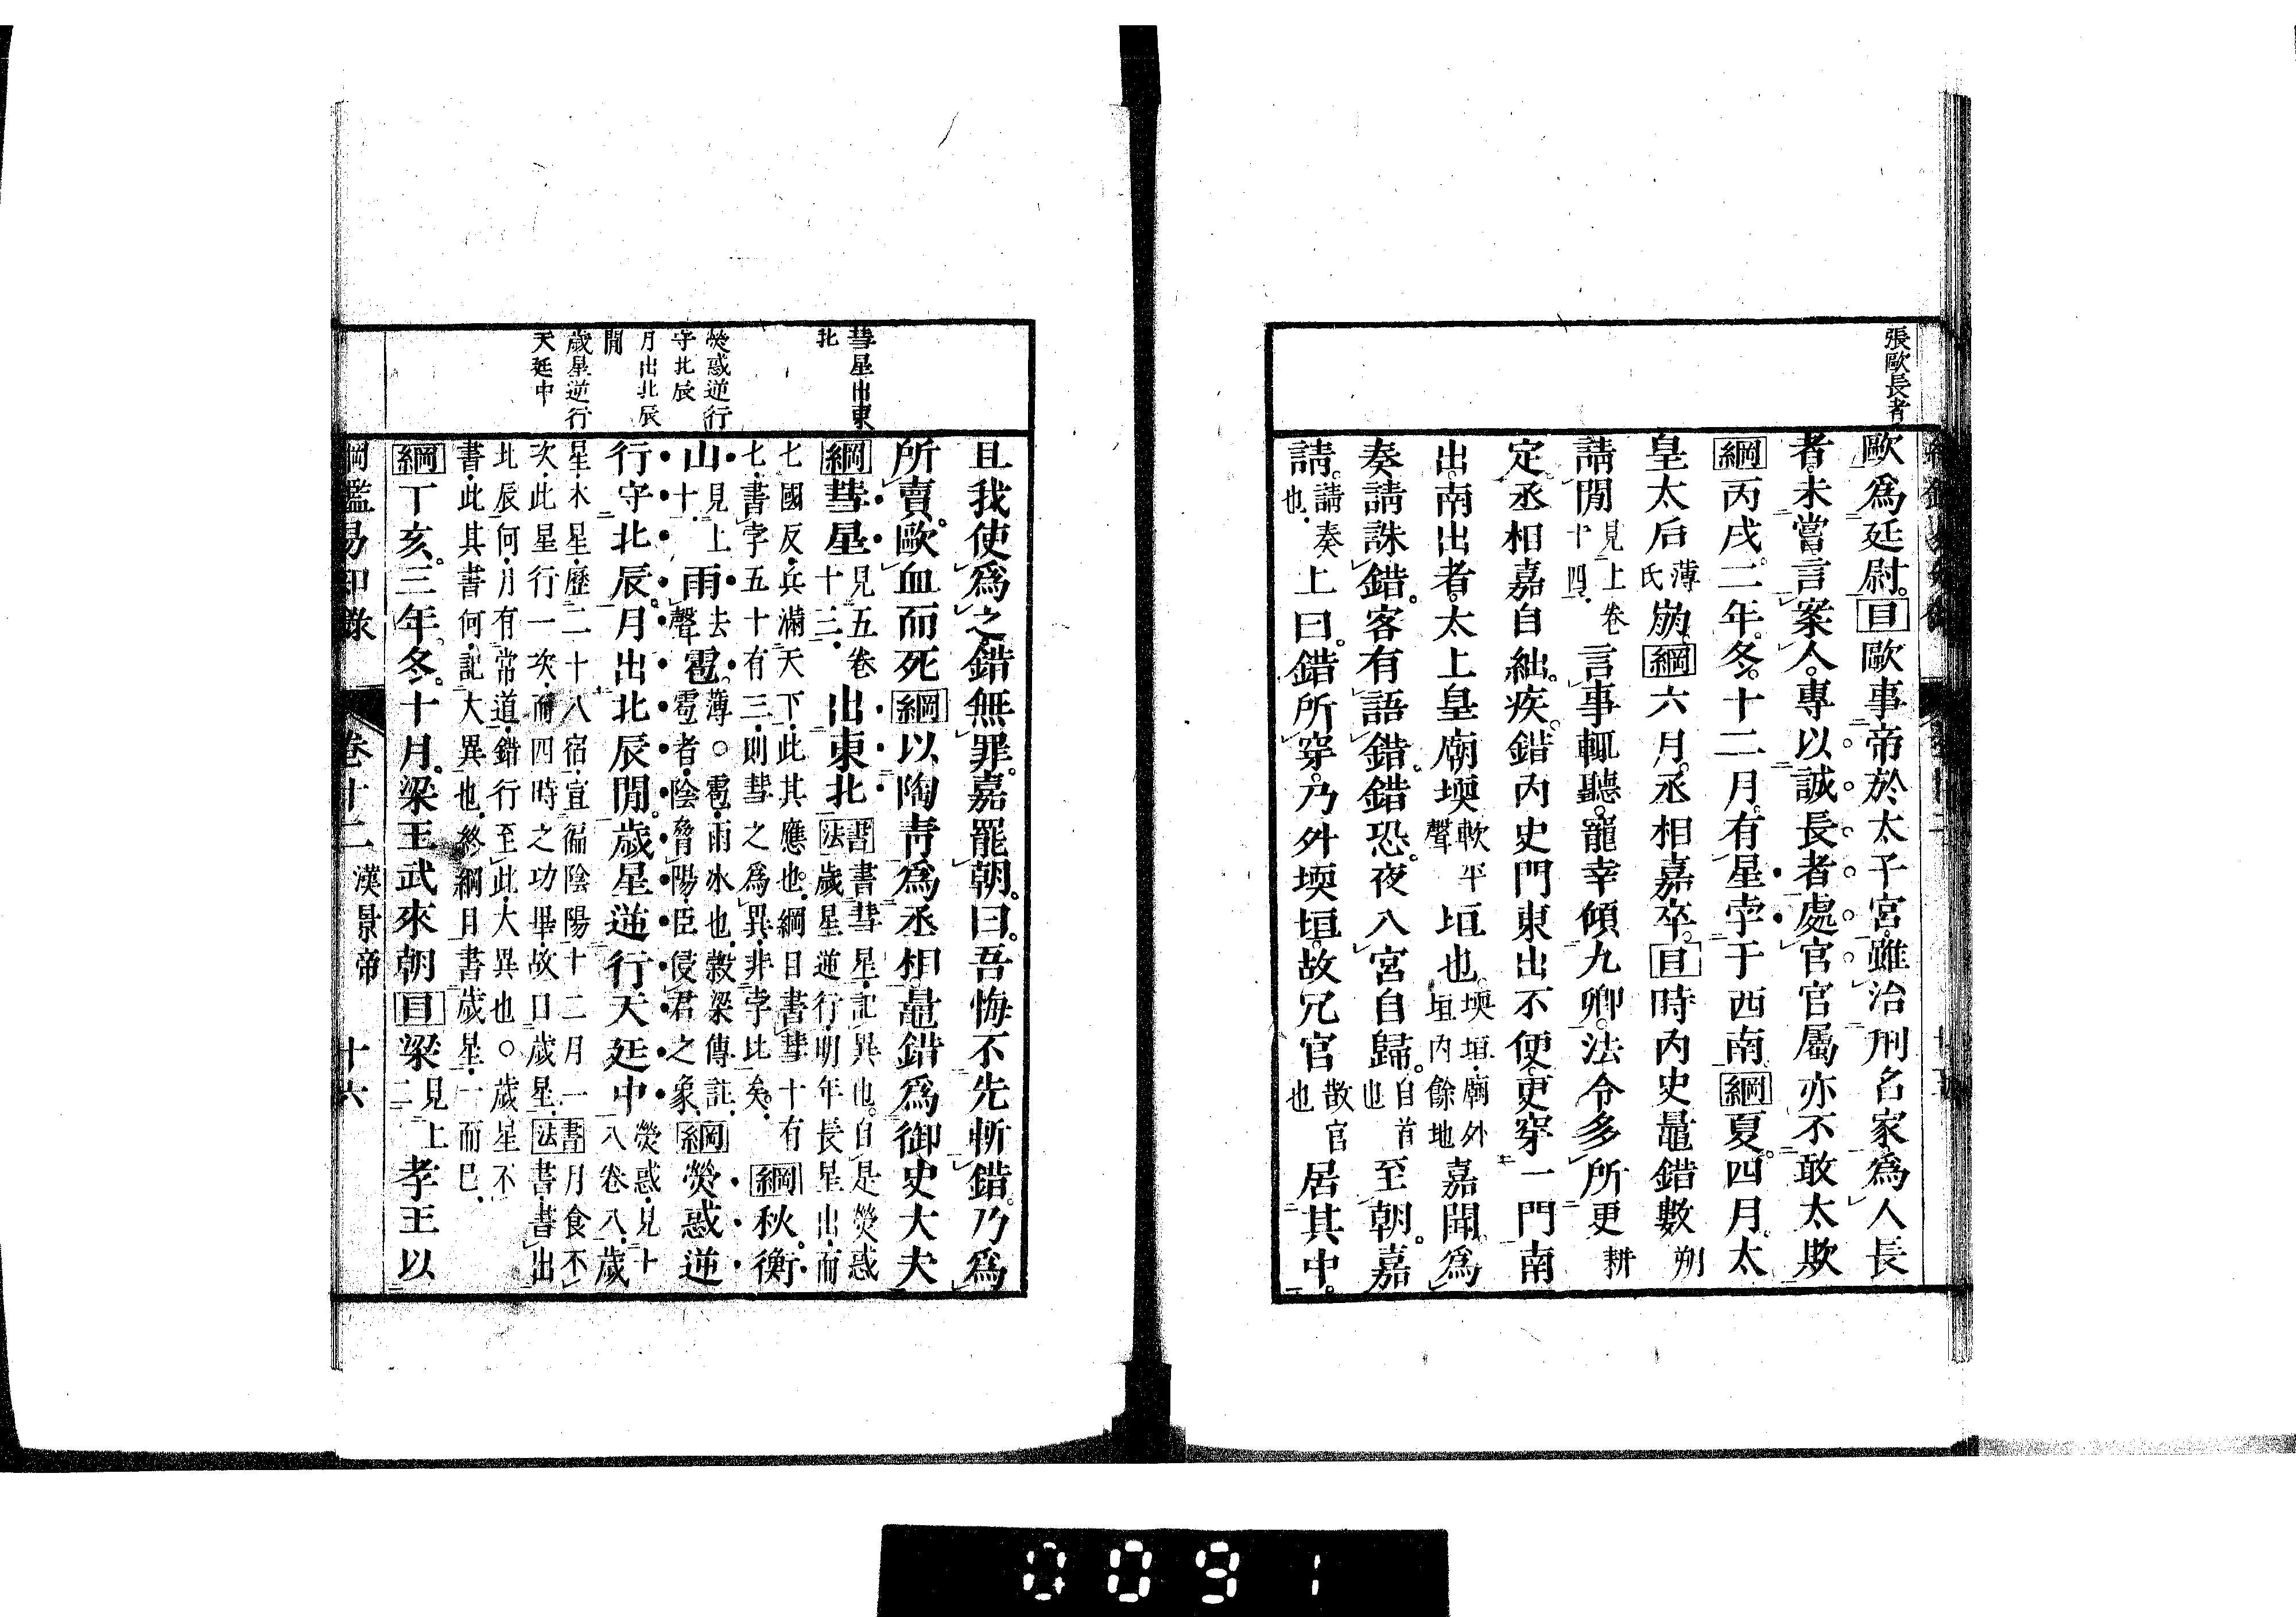 張歐長者
歐爲廷尉。目歐事帝於太子宮。雖治刑名家。爲人長
者。未嘗言案人。專以誠長者處官。官屬亦不敢太欺
綱丙戌。二年。冬。十二月。有星孛于西南綱夏。四月。太
皇太后薄氏崩。綱六月。丞相嘉卒。目時內史鼂錯數朔
請閒見上卷十四。言事輒聽。寵幸傾九卿。法令多所更耕
定。丞相嘉自絀。疾。錯內史門東出不便。更穿一門南
出。南出者。太上皇廟堧軟平聲垣也。堧垣。廟外垣內餘地嘉聞。爲
奏請誅錯。客有語錯。錯恐。夜入宮自歸。自首也至朝。嘉
請。請奏也。上曰。錯所穿。乃外堧垣。故冗官散官也居其中。
彗星出東
北
熒惑逆行
守北辰
月出北辰
閒
歲星逆行
天廷中
且我使爲之。錯無罪。嘉罷朝。曰。吾悔不先斬錯。乃爲
所賣。歐血而死綱以陶靑爲丞相。鼂錯爲御史大夫
綱彗星見五卷十三。出東北書法書彗星。記異也。自是熒惑歲星逆行。明年長星出。而
七國反。兵滿天下。此其應也。綱目書彗十有七。書孛五十有三。則彗之爲異。非孛比矣。綱秋。衡
山見上十。雨去聲雹。薄。○雹。雨冰也。穀梁傳註。雹者。陰脅陽。臣侵君之象。綱熒惑逆
行守北辰。月出北辰閒。歲星逆行天廷中熒惑。見十八卷八。歲
星。木星。歷二十八宿。宣徧陰陽。十二月一次。此星行一次。而四時之功畢。故曰歲星。書法書月食不書。書出
北辰何。月有常道。錯行至此。大異也。○歲星不書。此其書何。記大異也。終綱目書歲星。一而已。
綱丁亥。三年。冬。十月。梁王武來朝目梁見上二孝王以
綱鑑易知錄 卷十二 漢景帝 十六
0091